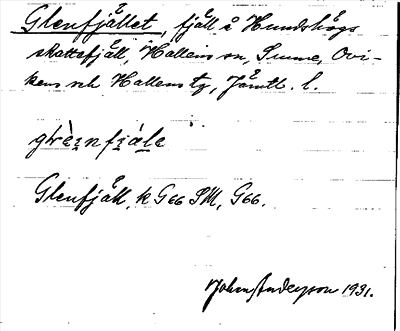 Glenfjället, fjäll å Hundshögs
skattefjäll, Hallens sn, Sunne, Ovi-
kens och Hallens tg, Jämtl. l.
glèᶇnfjäle
Glenfjäll, k G66 SM, G66.
John Anderson 1931.